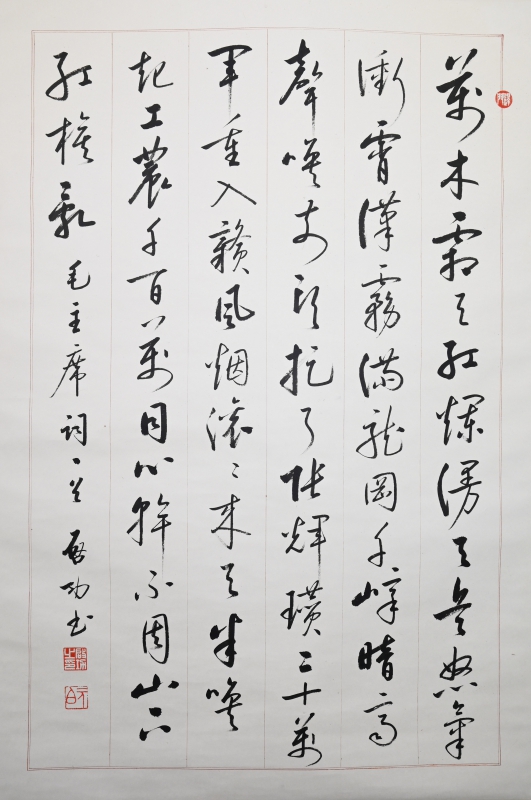 萬木霜天紅爛漫天兵怒氣
衝霄漢霧滿龍岡千嶂暗齊
聲喚前頭捉了張輝瓚二十萬
軍重入贛風烟滾〻來天半喚
起工農千百萬同心幹不周山下
紅旗亂 毛主席詞一首 啟功書
元白